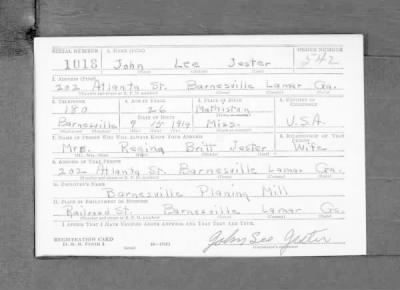 SERIAL NUMBER 1. NAME (Print) ORDER NUMBER
1018 John Lee Jester 542
(First) (Middle) (Last)
2. ADDRESS (Print)
202 Atlanta St. Barnesville Lamar Ga.
3. TELEPHONE 4. AGE IN YEARS 5. PLACE OF BIRTH 6. COUNTRY OF CITIZENSHIP
180 26 Mathiston
DATE OF BIRTH
Barnesville 9 15 1914 Miss. U.S.A.
7. NAME OF PERSON WHO WILL ALWAYS KNOW YOUR ADDRESS 8. RELATIONSHIP OF THAT PERSON
Mrs. Regina Britt Jester Wife
(Mr., Mrs., Miss) (First) (Middle) (Last)
9. ADDRESS OF THAT PERSON
202 Atlanta St. Barnesville Lamar Ga.
10. EMPLOYER'S NAME
Barnesville Planing Mill
11. PLACE OF EMPLOYMENT OR BUSINESS
Railroad St. Barnesville Lamar Ga.
I AFFIRM THAT I HAVE VERIFIED ABOVE ANSWERS AND THAT THEY ARE TRUE.
REGISTRATION CARD
D. S. S. FORM 1 16—17105 John Lee Jester